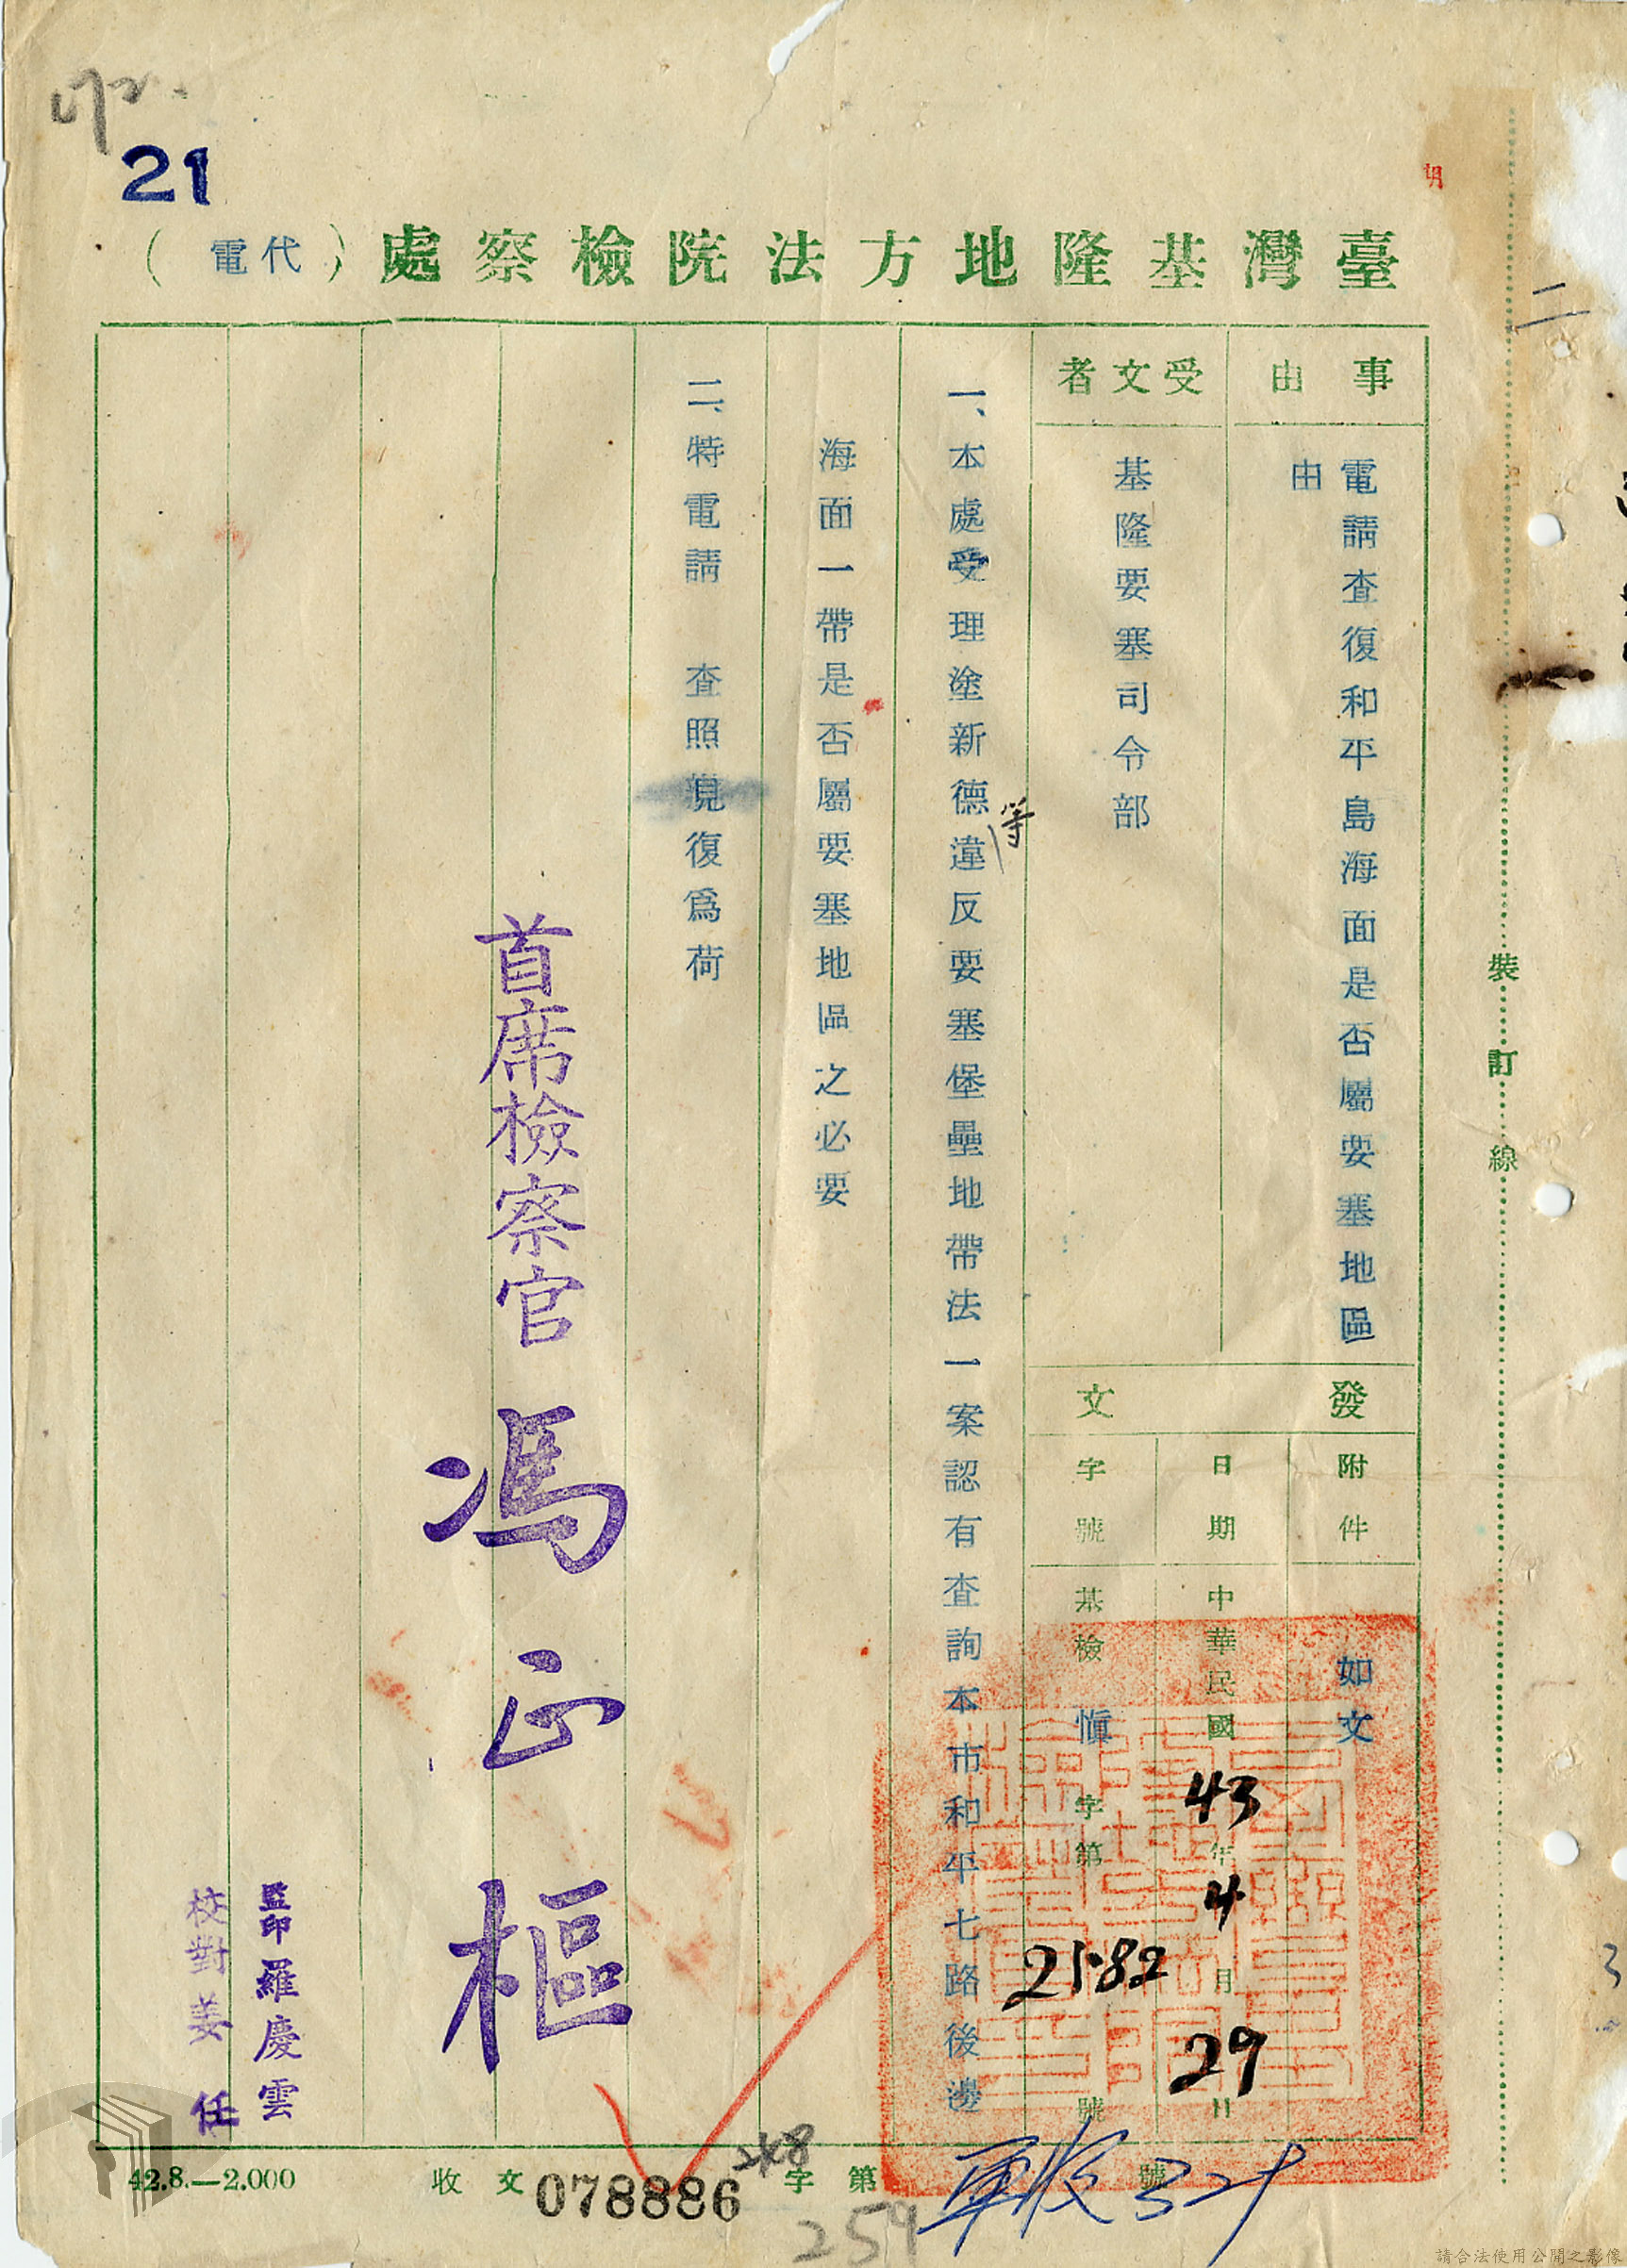 21
臺灣基隆地方法院檢察處（代電）
事由
電請查復和平島海面是否屬要塞地區
由
受文者
基隆要塞司令部
發文
附件
如文
日期
中華民國43年4月29日
字號
基檢愼字第2182號
一、本處受理塗新德等違反要塞堡壘地帶法一案認有查詢本市和平七路後邊
海面一帶是否屬要塞地區之必要
二、特電請　查照見復為荷
首席檢察官馮正樞
監印羅慶雲
校對姜任
裝訂線
收文078886字第號
259
42.8.—2.000
二
請合法使用公開之影像